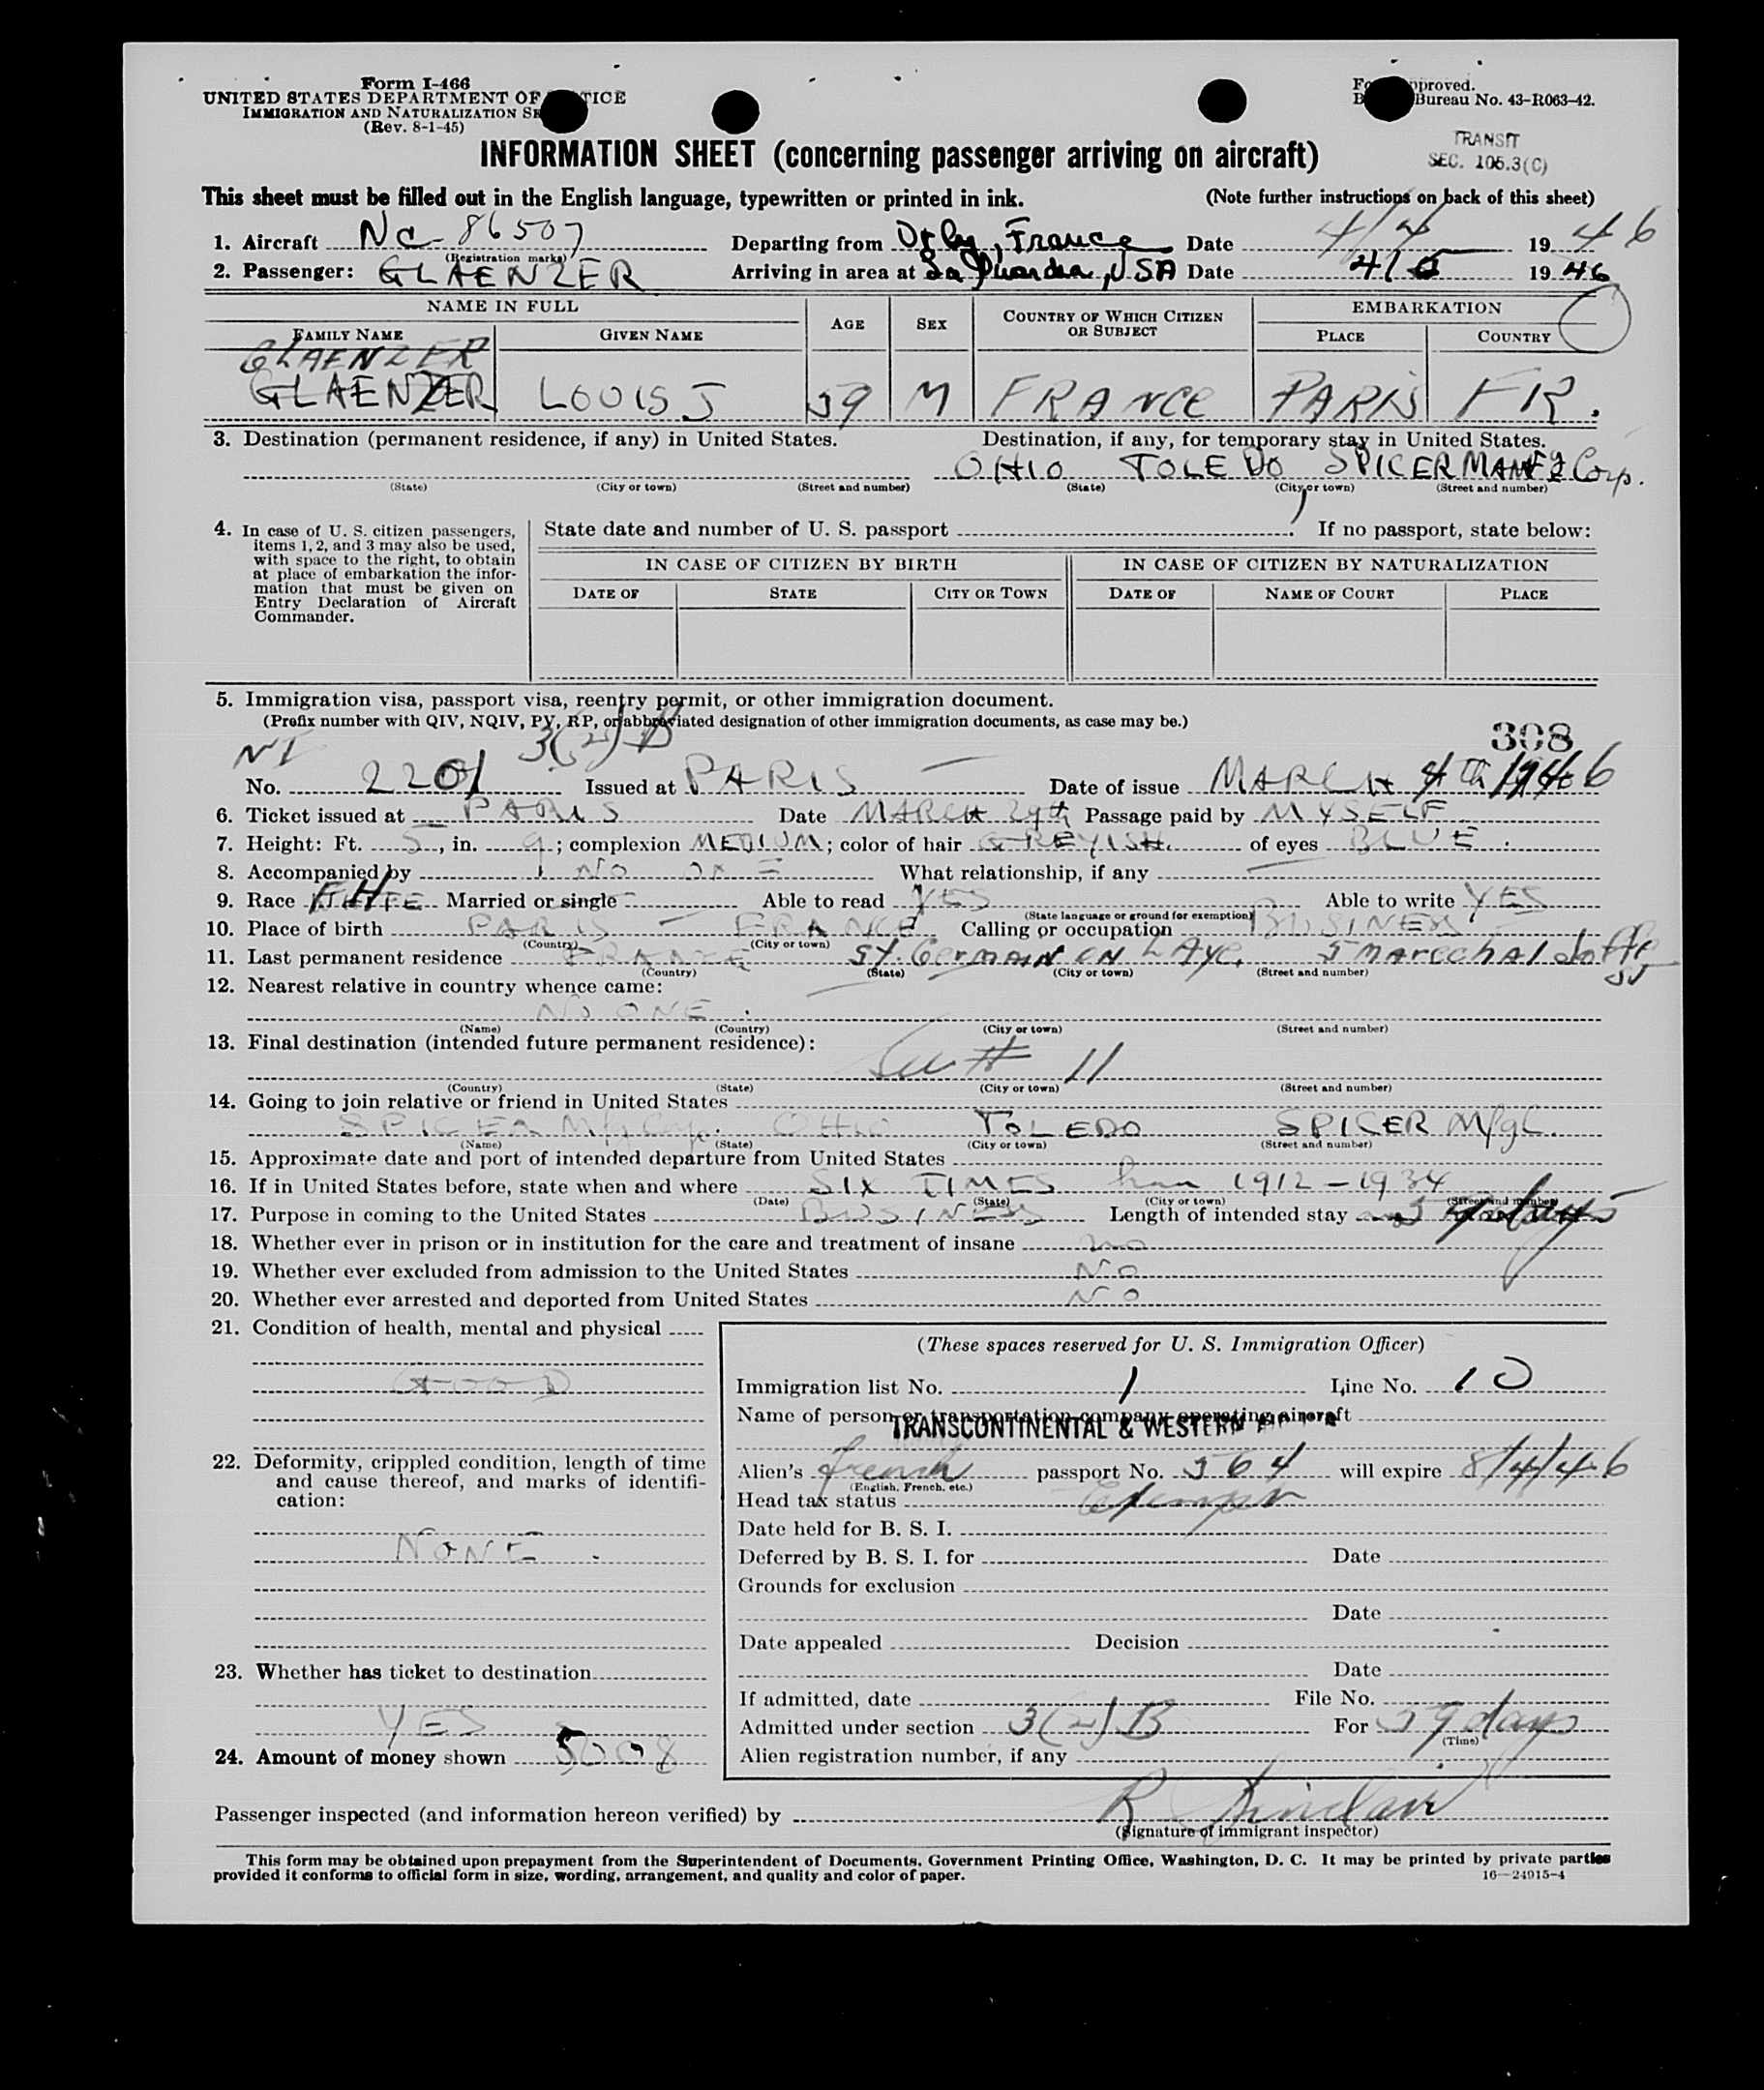 Form I-466
UNITED STATES DEPARTMENT OF
IMMIGRATION AND NATURALIZATION
(Rev. 8-1-45)
Bureau No. 43-R063-42.
TRANSIT
SEC. 105.3(C)
INFORMATION SHEET (concerning passenger arriving on aircraft)
This sheet must be filled out in the English language, typewritten or printed in ink. (Note further instructions on back of this sheet)
1. Aircraft NC-86507 Departing from Orly, France Date 4/4 1946
(Registration marks)
2. Passenger: GLAENZER Arriving in area at La Guardia, USA Date 4/5 1946
NAME IN FULL AGE SEX COUNTRY OF WHICH CITIZEN OR SUBJECT EMBARKATION
FAMILY NAME GIVEN NAME PLACE COUNTRY
GLAENZER
GLAENZER LOUIS J 59 M FRANCE PARIS FR.
3. Destination (permanent residence, if any) in United States. Destination, if any, for temporary stay in United States.
OHIO TOLEDO SPICER Corp.
(State) (City or town) (Street and number) (State) (City or town) (Street and number)
4. In case of U. S. citizen passengers, items 1, 2, and 3 may also be used, with space to the right, to obtain at place of embarkation the information that must be given on Entry Declaration of Aircraft Commander.
State date and number of U. S. passport If no passport, state below:
IN CASE OF CITIZEN BY BIRTH IN CASE OF CITIZEN BY NATURALIZATION
DATE OF STATE CITY OR TOWN DATE OF NAME OF COURT PLACE
5. Immigration visa, passport visa, reentry permit, or other immigration document.
(Prefix number with QIV, NQIV, PV, RP, or abbreviated designation of other immigration documents, as case may be.)
308
NI 3(2)B
No. 2201 Issued at PARIS Date of issue MARCH 4th 1946
6. Ticket issued at PARIS Date MARCH 29th Passage paid by MYSELF
7. Height: Ft. 5, in. 9; complexion MEDIUM; color of hair GREYISH of eyes BLUE.
8. Accompanied by NO ONE What relationship, if any —
9. Race Married or single Able to read YES Able to write YES
(State language or ground for exemption)
10. Place of birth PARIS — FRANCE Calling or occupation BUSINESS
(Country) (City or town)
11. Last permanent residence FRANCE St. Germain en Laye, 5 Marechal Joffre
(Country) (State) (City or town) (Street and number)
12. Nearest relative in country whence came:
NO ONE.
(Name) (Country) (City or town) (Street and number)
13. Final destination (intended future permanent residence):
See # 11
(Country) (State) (City or town) (Street and number)
14. Going to join relative or friend in United States
SPICER Mfg Corp. OHIO TOLEDO SPICER Mfg C.
(Name) (State) (City or town) (Street and number)
15. Approximate date and port of intended departure from United States
16. If in United States before, state when and where SIX TIMES from 1912 – 1934
(Date) (State) (City or town) (Street and number)
17. Purpose in coming to the United States BUSINESS Length of intended stay
18. Whether ever in prison or in institution for the care and treatment of insane no
19. Whether ever excluded from admission to the United States NO
20. Whether ever arrested and deported from United States NO
21. Condition of health, mental and physical
GOOD
22. Deformity, crippled condition, length of time and cause thereof, and marks of identification:
NONE.
23. Whether has ticket to destination
YES
24. Amount of money shown
(These spaces reserved for U. S. Immigration Officer)
Immigration list No. 1 Line No. 10
Name of person or transportation company operating aircraft
TRANSCONTINENTAL & WESTERN
Alien's French passport No. 564 will expire 8/4/46
(English, French, etc.)
Head tax status Exempt
Date held for B. S. I.
Deferred by B. S. I. for Date
Grounds for exclusion
Date
Date appealed Decision
Date
If admitted, date File No.
Admitted under section 3(2)B For 59 days
(Time)
Alien registration number, if any
Passenger inspected (and information hereon verified) by R Sinclair
(Signature of immigrant inspector)
This form may be obtained upon prepayment from the Superintendent of Documents, Government Printing Office, Washington, D. C. It may be printed by private parties
provided it conforms to official form in size, wording, arrangement, and quality and color of paper. 16—24915-4